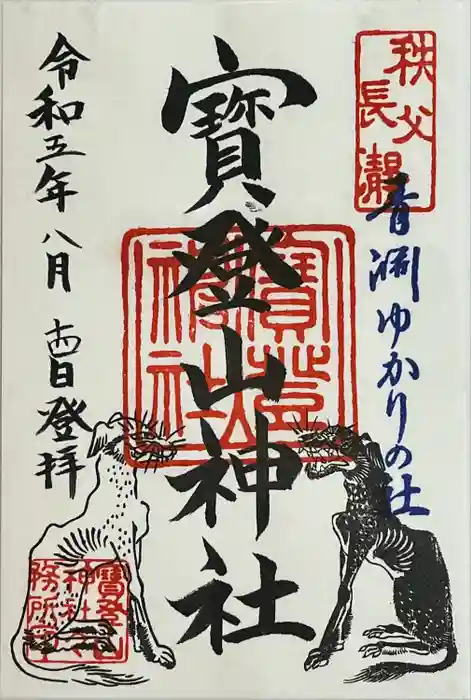 秩父
長瀞
青淵ゆかりの社
寳登山神社
寳登山
神社
令和五年八月十四日登拝
寳登山
神社社
務所印